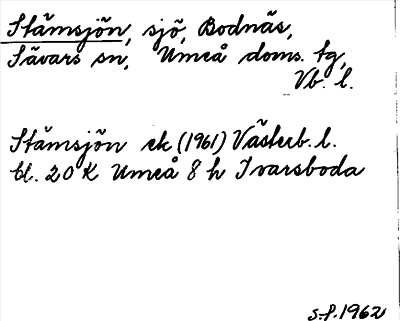 Stämsjön, sjö, Bodnäs,
Sävars sn, Umeå doms. tg,
Vb. l.
Stämsjön ek (1961) Västerb. l.
bl. 20 K Umeå 8 h Ivarsboda
S.f. 1962